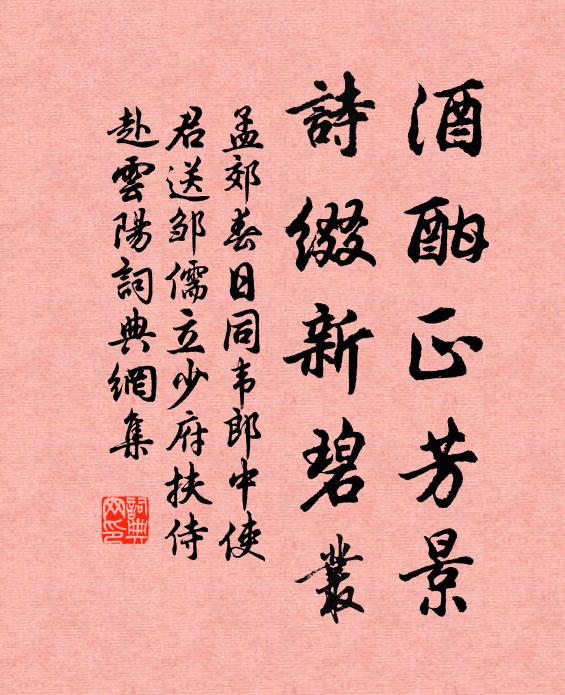 酒酣正芳景
詩綴新碧叢
孟郊春日同韦郎中使
君送邹儒立少府扶侍
赴雲陽詞典網集
詞典
网印